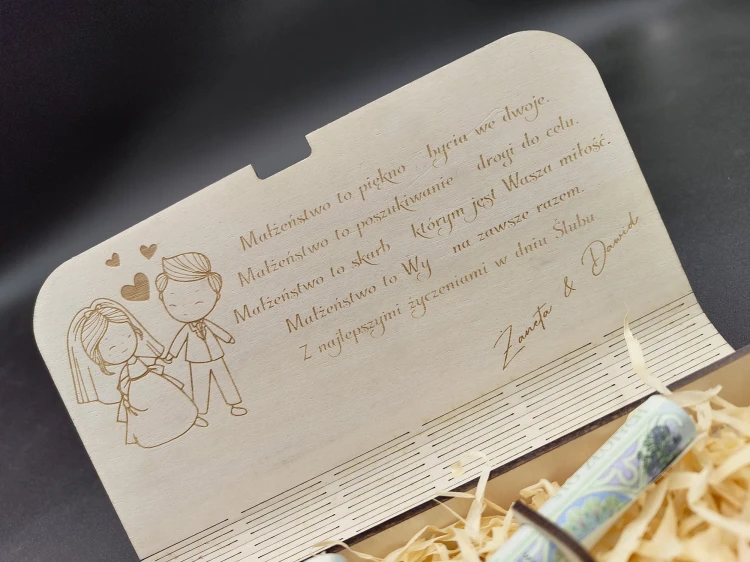 Małżeństwo to piękno bycia we dwoje.
Małżeństwo to poszukiwanie drogi do celu,
Małżeństwo to skarb którym jest Wasza miłość.
Małżeństwo to Wy na zawsze razem.
Z najlepszymi życzeniami w dniu Ślubu
Żaneta & Dawid